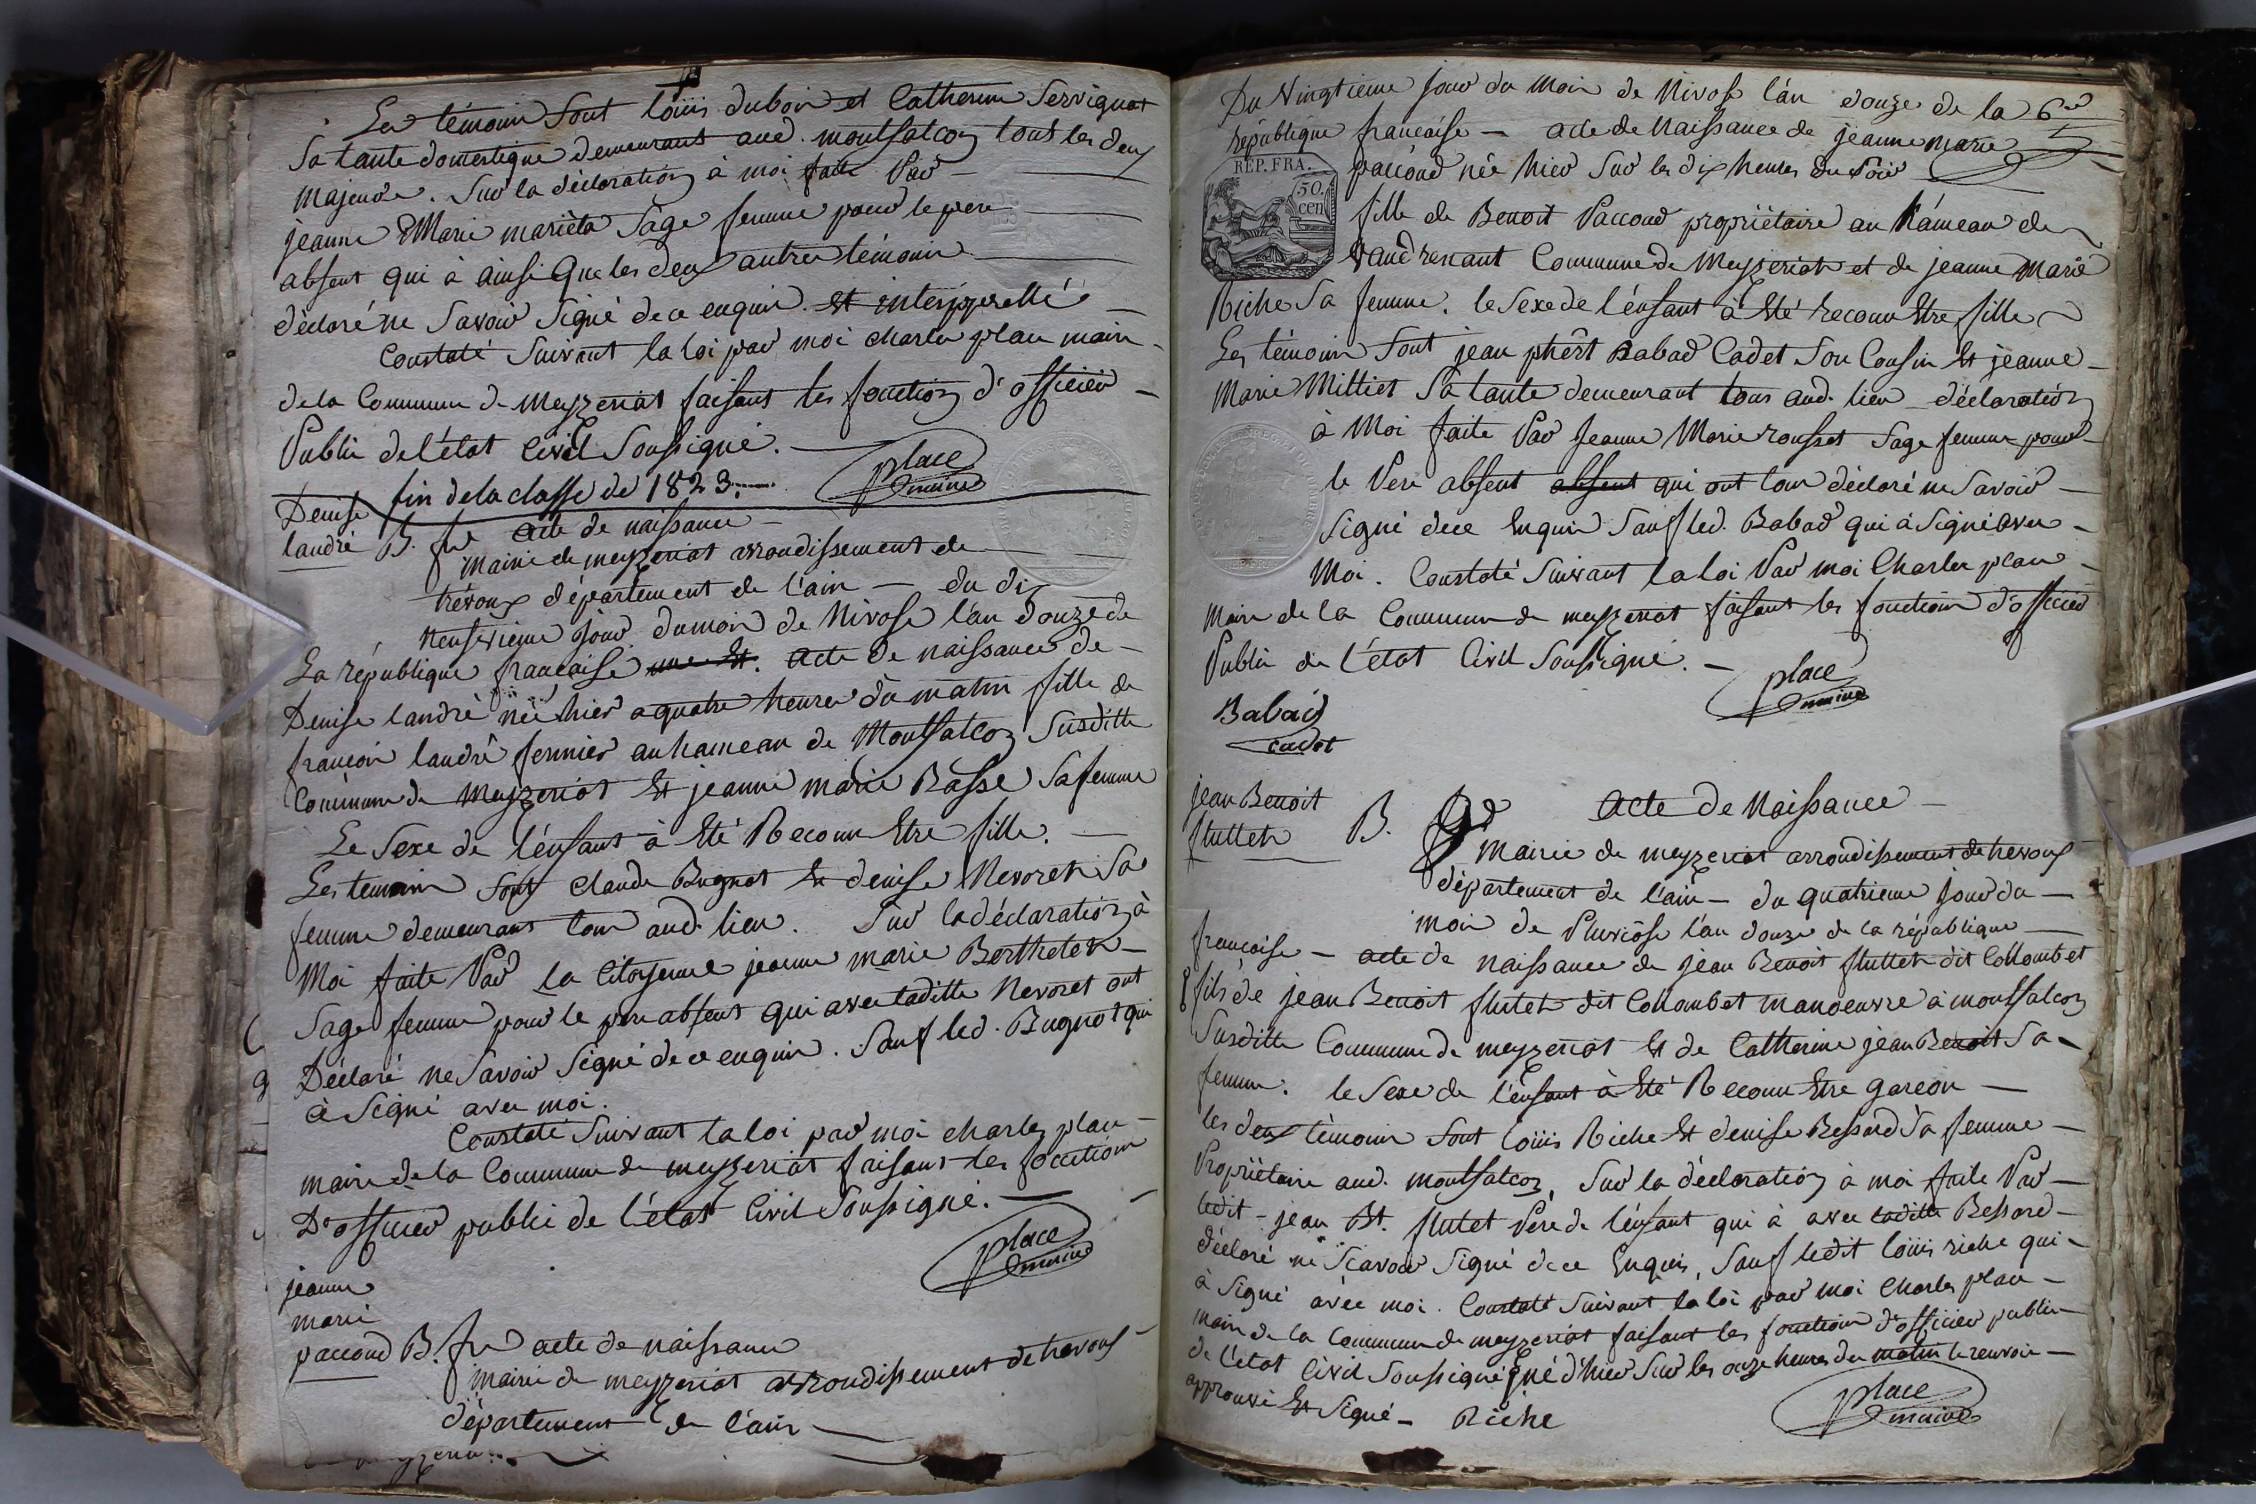 Les témoin sont loüis duboin et Catherine Servignat
sa tante domestique demeurants aud. montfalcon tout les deux
majeure. Sur la déclaration à moi faite Par
jeanne Marie mariéta Sage femme pour le pere
absent qui à ainsi que les deux autres témoin
déclaré ne Savoir Signé de ce enquin. et interppellé
Constaté Suivant la loi par moi charles place maire
de la Commune de meyzeriat faisant les fonction d'officier
Public de l'état Civil Soussigné.
place
maire
fin de la classe de 1823.
Denise
landré B. fe acte de naissance
mairie de meyzeriat arrondissement de
trévoux département de l'ain — du dix
neufvieme jour du mois de Nivose l'an douze de
La république francaise une et. acte de naissance de
Denise landré née hier a quatre heures du matin fille de
francois landré fermier au hameau de Montfalcon Susditte
Commune de meyzeriat Et jeanne marie Basse Sa femme
Le Sexe de l'enfant à Eté Reconnu Etre fille.
Les temoin sont claude Bugnot Et denise Nevoret Sa
femme demeurans tous aud. lieu. Sur la déclaration à
Moi faite Par la Citoyenne jeanne marie Berthelet
Sage femme pour le pere absent qui avec laditte Nevoret ont
Déclaré ne Savoir Signé de ce enquin. Sauf led. Bugnot qui
à Signé avec moi.
Constaté Suivant la loi par moi charles place
maire de la Commune de meyzeriat faisant les fonctions
D'officier public de l'état Civil Soussigné.
place
maire
jeanne
marie
paccoud B. fe acte de naissance
mairie de meyzeriat arrondissement de trevoux
département de l'ain
Du Vingtieme jour du Mois de Nivose l'an douze de la
république française — acte de Naissance de jeanne marie
REP. FRA.
50.
cen
paccoud née hier Sur les dix heures du Soir
fille de Benoit Paccoud propriétaire au hameau de
Vaudrenant Commune de Meyzeriat et de jeanne Marie
Riche Sa femme. le Sexe de l'enfant à Eté reconnu Etre fille
Les témoin Sont jean phêrt Babad Cadet Son Cousin Et jeanne
Marie Milliet Sa tante demeurant tous aud. lieu déclaration
à Moi faite Par Jeanne Marie rousset Sage femme pour
le Pere absent absent qui ont tous déclaré ne Savoir
Signé de ce Enquin Sauf led. Babad qui à Signé avec
Moi. Constaté Suivant la loi Par moi Charles place
Maire de la Commune de meyzeriat faisant les fonctions d'officier
Public de l'état Civil Soussigné.
place
maire
Babad
cadet
jean Benoit
fluttet B. Acte de Naissance
Mairie de meyzeriat arrondissement de trevoux
département de l'ain — du quatrieme jour du
mois de Pluviôse l'an douze de la république
francaise — acte de naissance de jean Benoit fluttet dit Collombet
fils de jean Benoit flutet dit Collombet manoeuvre à montfalcon
Susditte Commune de meyzeriat Et de Catherine jean Benoit Sa
femme. le Sexe de l'enfant à Eté Reconnu Etre garcon
les deux témoin Sont loüis Riche Et denise Bessard Sa femme
Propriétaire aud. montfalcon, Sur la déclaration à moi faite Par
ledit jean Bt. flutet Pere de l'enfant qui à avec laditte Bessard
déclaré ne Scavoir Signé de ce Enquin, Sauf ledit loüis riche qui
à Signé avec moi. Constaté Suivant la loi par moi Charles place
maire de la Commune de meyzeriat faisant les fonctions d'officier public
de l'état Civil Soussigné né d'hier Sur les onze heures du matin le renvoie
approuvé Et Signé — Riche
place
maire